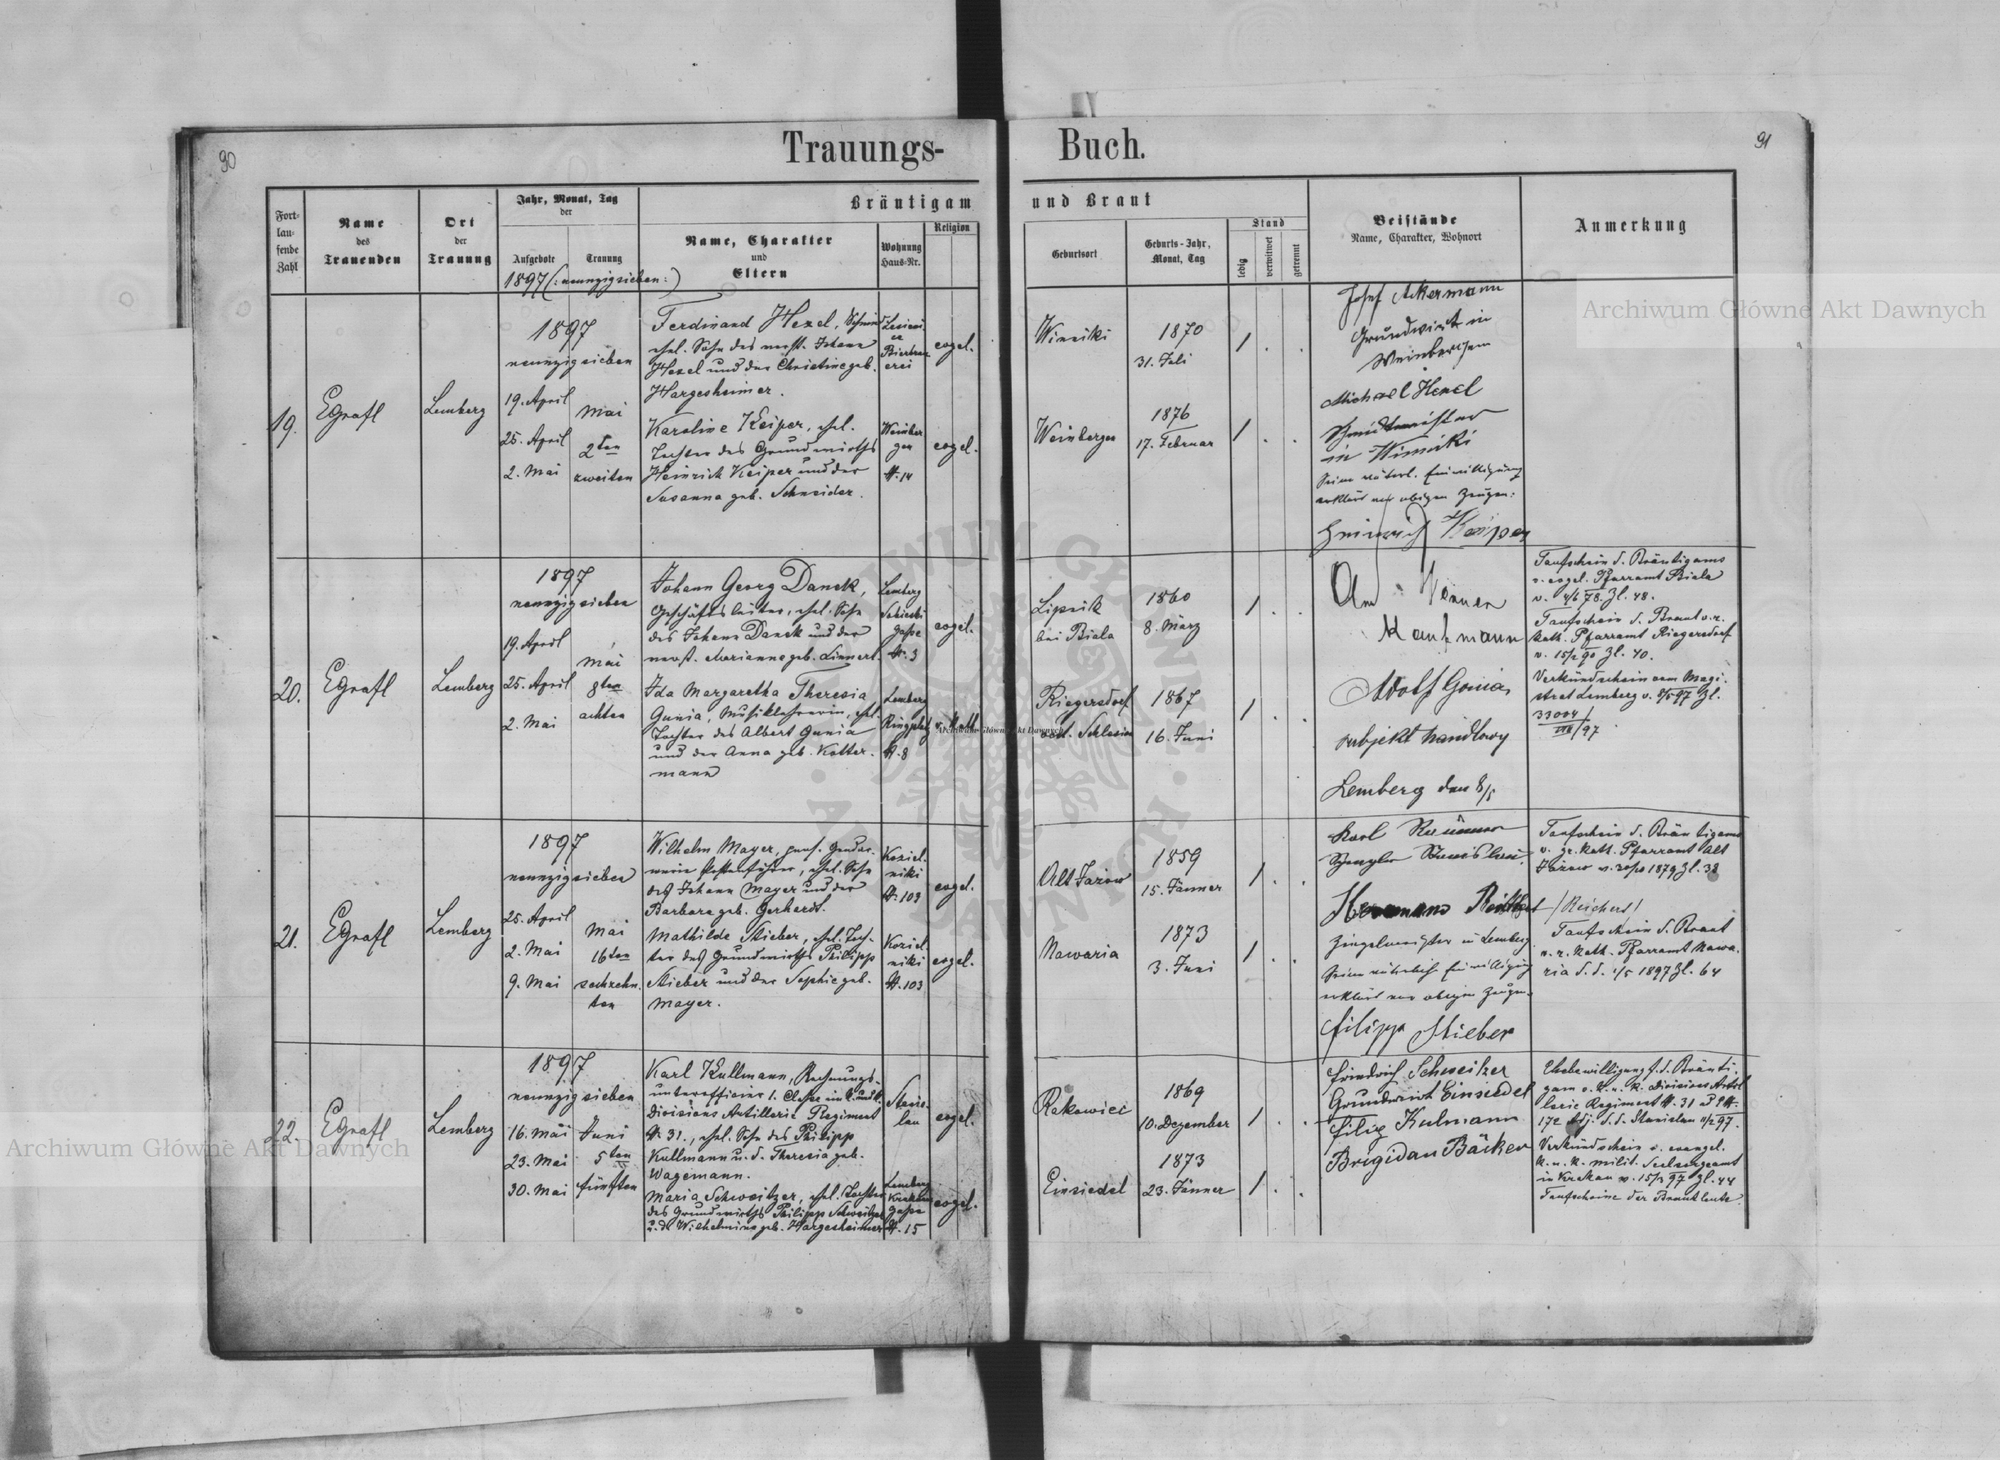 90
91
Trauungs-
Buch.
Fort-
lau-
fende
Zahl
Name
des
Trauenden
Ort
der
Trauung
Jahr, Monat, Tag
der
Aufgebote
Trauung
1897 (: neunzigsieben :)
Bräutigam
Name, Charakter
und
Eltern
Wohnung
Haus-Nr.
Religion
und Braut
Geburtsort
Geburts-Jahr,
Monat, Tag
Stand
ledig
verwitwet
getrennt
Beistände
Name, Charakter, Wohnort
Anmerkung
19.
EGrafl
Lemberg
1897
neunzigsieben
19. April
25. April
2. Mai
Mai
2ten
zweiten
Ferdinand Hexel, Schmied
ehel. Sohn des verst. Johann
Hexel und der Christine geb.
Hargesheimer.
evgel.
Karoline Keiper, ehel.
Tochter des Grundwirths
Heinrich Keiper und der
Susanna geb. Schneider.
Weinber
gen
N. 14
evgel.
Winniki
1870
31. Juli
Weinbergen
1876
17. Februar
Josef Ackermann
Grundwirt in
Weinbergen
Michael Hexel
Schmidtmeister
in Winniki
Seine väterl. Einwilligung
erklärt vor obigen Zeugen:
Heinrich Keiper
20.
EGrafl
Lemberg
1897
neunzigsieben
19. April
25. April
2. Mai
Mai
8ten
achten
Johann Georg Danek,
Geschäftsleiter, ehel. Sohn
des Johann Danek und der
verst. Marianne geb. Linnert.
Lemberg
Sobieski
gasse
N. 3
evgel.
Ida Margaretha Theresia
Gunia, Musiklehrerin, ehel.
Tochter des Albert Gunia
und der Anna geb. Kotter-
mann
Lemberg
Ringplatz
N. 8
r. Kath.
Lipnik
bei Biala
1860
8. März
Riegersdorf
oest. Schlesien
1867
16. Juni
Kaufmann
Adolf Gonia,
subjekt handlowy
Lemberg den 8/5
Taufschein d. Bräutigams
v. evgel. Pfarramt Biala
v. 4/6 78. Zl. 48.
Taufschein d. Braut v. r.
Kath. Pfarramt Riegersdorf
v. 15/2 90 Zl. 40.
Verkündschein vom Magi-
strat Lemberg v. 8/5 97 Zl.
33004
VIII/97
21.
EGrafl
Lemberg
1897
neunzigsieben
25. April
2. Mai
9. Mai
Mai
16ten
sechzehn-
ten
Wilhelm Mayer, pens. Gendar-
merie Postenführer, ehel. Sohn
des Johann Mayer und der
Barbara geb. Gerhardt.
Koziel-
niki
N. 103
evgel.
Mathilde Stieber, ehel. Toch-
ter des Grundwirths Philipp
Stieber und der Sophie geb.
Mayer.
Koziel
niki
N. 103
evgel.
Alt Jazow
1859
15. Jänner
Nawaria
1873
3. Juni
Karl
Spengler
Hermann
/Reichert/
Ziegelmeister in Lemberg
Seine väterlich Einwilligung
erklärt vor obigen Zeugen.
Filipp Stieber
Taufschein d. Bräutigams
v. gr. Kath. Pfarramt Alt
Jazow v. 30/10 1879 Zl. 38
Taufschein d. Braut
v. r. Kath. Pfarramt Nawa-
ria d. d. 1/5 1897 Zl. 64
22.
EGrafl
Lemberg
1897
neunzigsieben
16. Mai
23. Mai
30. Mai
Juni
5ten
fünften
Karl Kullmann, Rechnungs-
unterofficier 1. Classe im k. und k.
Divisions Artillerie Regiment
N. 31., ehel. Sohn des Philipp
Kullmann u. d. Theresia geb.
Wagemann.
Stanis-
lau
evgel.
Maria Schweitzer, ehel. Tochter
des Grundwirths Philipp Schweitzer
u. d. Wilhelmine geb. Hargesheimer
Lemberg
gasse
N. 15
evgel.
Rakowiec
1869
10. Dezember
Einsiedel
1873
23. Jänner
Friedrich Schweitzer
Grundwirt Einsiedel
Filip Kulmann
Brigidau Bäcker
Ehebewilligung f. d. Bräuti-
gam v. k. u. k. Divisions Artil-
lerie Regiment N. 31
172 Adj. d. d. Stanislau
Verkündschein v. evangel.
k. u. k. milit. Seelsorgeamt
in Krakau v. 15/3 97 Zl. 44
Taufscheine der Brautleute.
Archiwum Główne Akt Dawnych
Archiwum Główne Akt Dawnych
Archiwum Główne Akt Dawnych